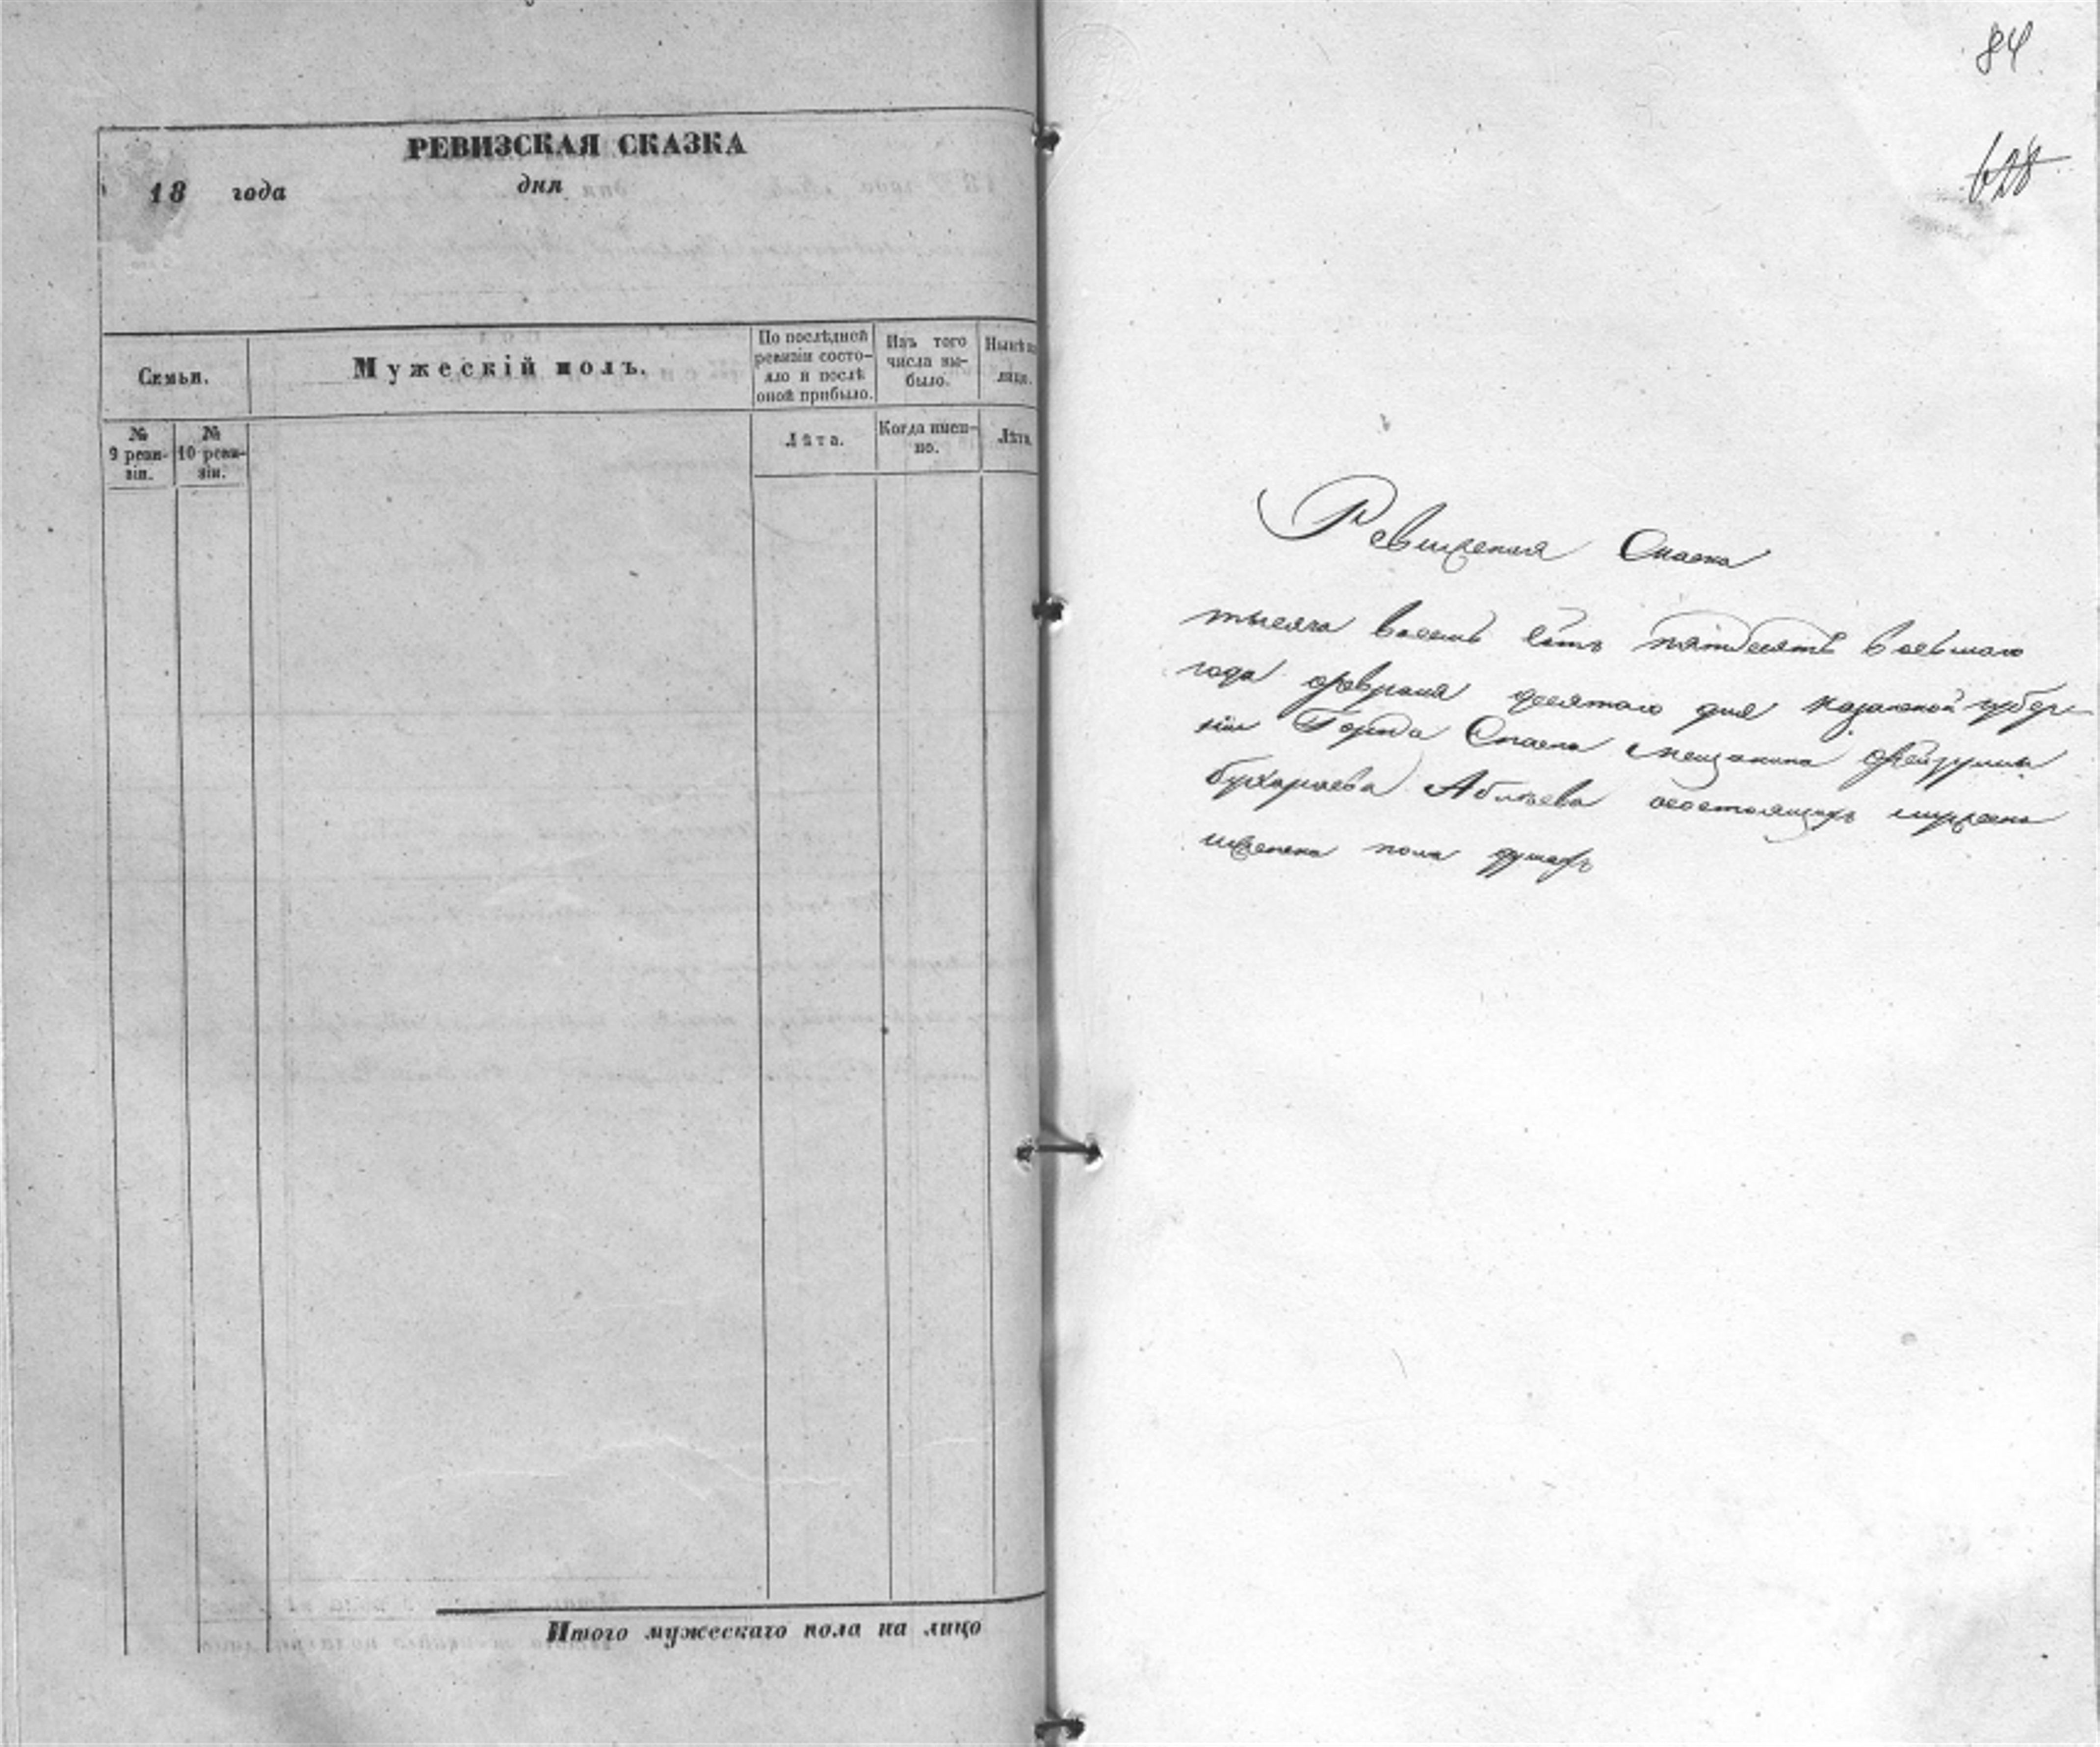 РЕВИЗСКАЯ СКАЗКА
18 года дня
Семьи.
Мужескій полъ.
По послѣдней ревизіи состояло и послѣ оной прибыло.
Изъ того числа выбыло.
Нынѣ на лицо.
№ 9 ревизіи.
№ 10 ревизіи.
Лѣта.
Когда именно.
Лѣта.
Итого мужескаго пола на лицо
84
628
Ревизская Сказка
тысяча восемь сотъ пятдесятъ восьмаго
года февраля десятаго дня казанской губер-
ніи Города Спаска мещанина
Абляева о состоящихъ мужеска
и женска пола душахъ